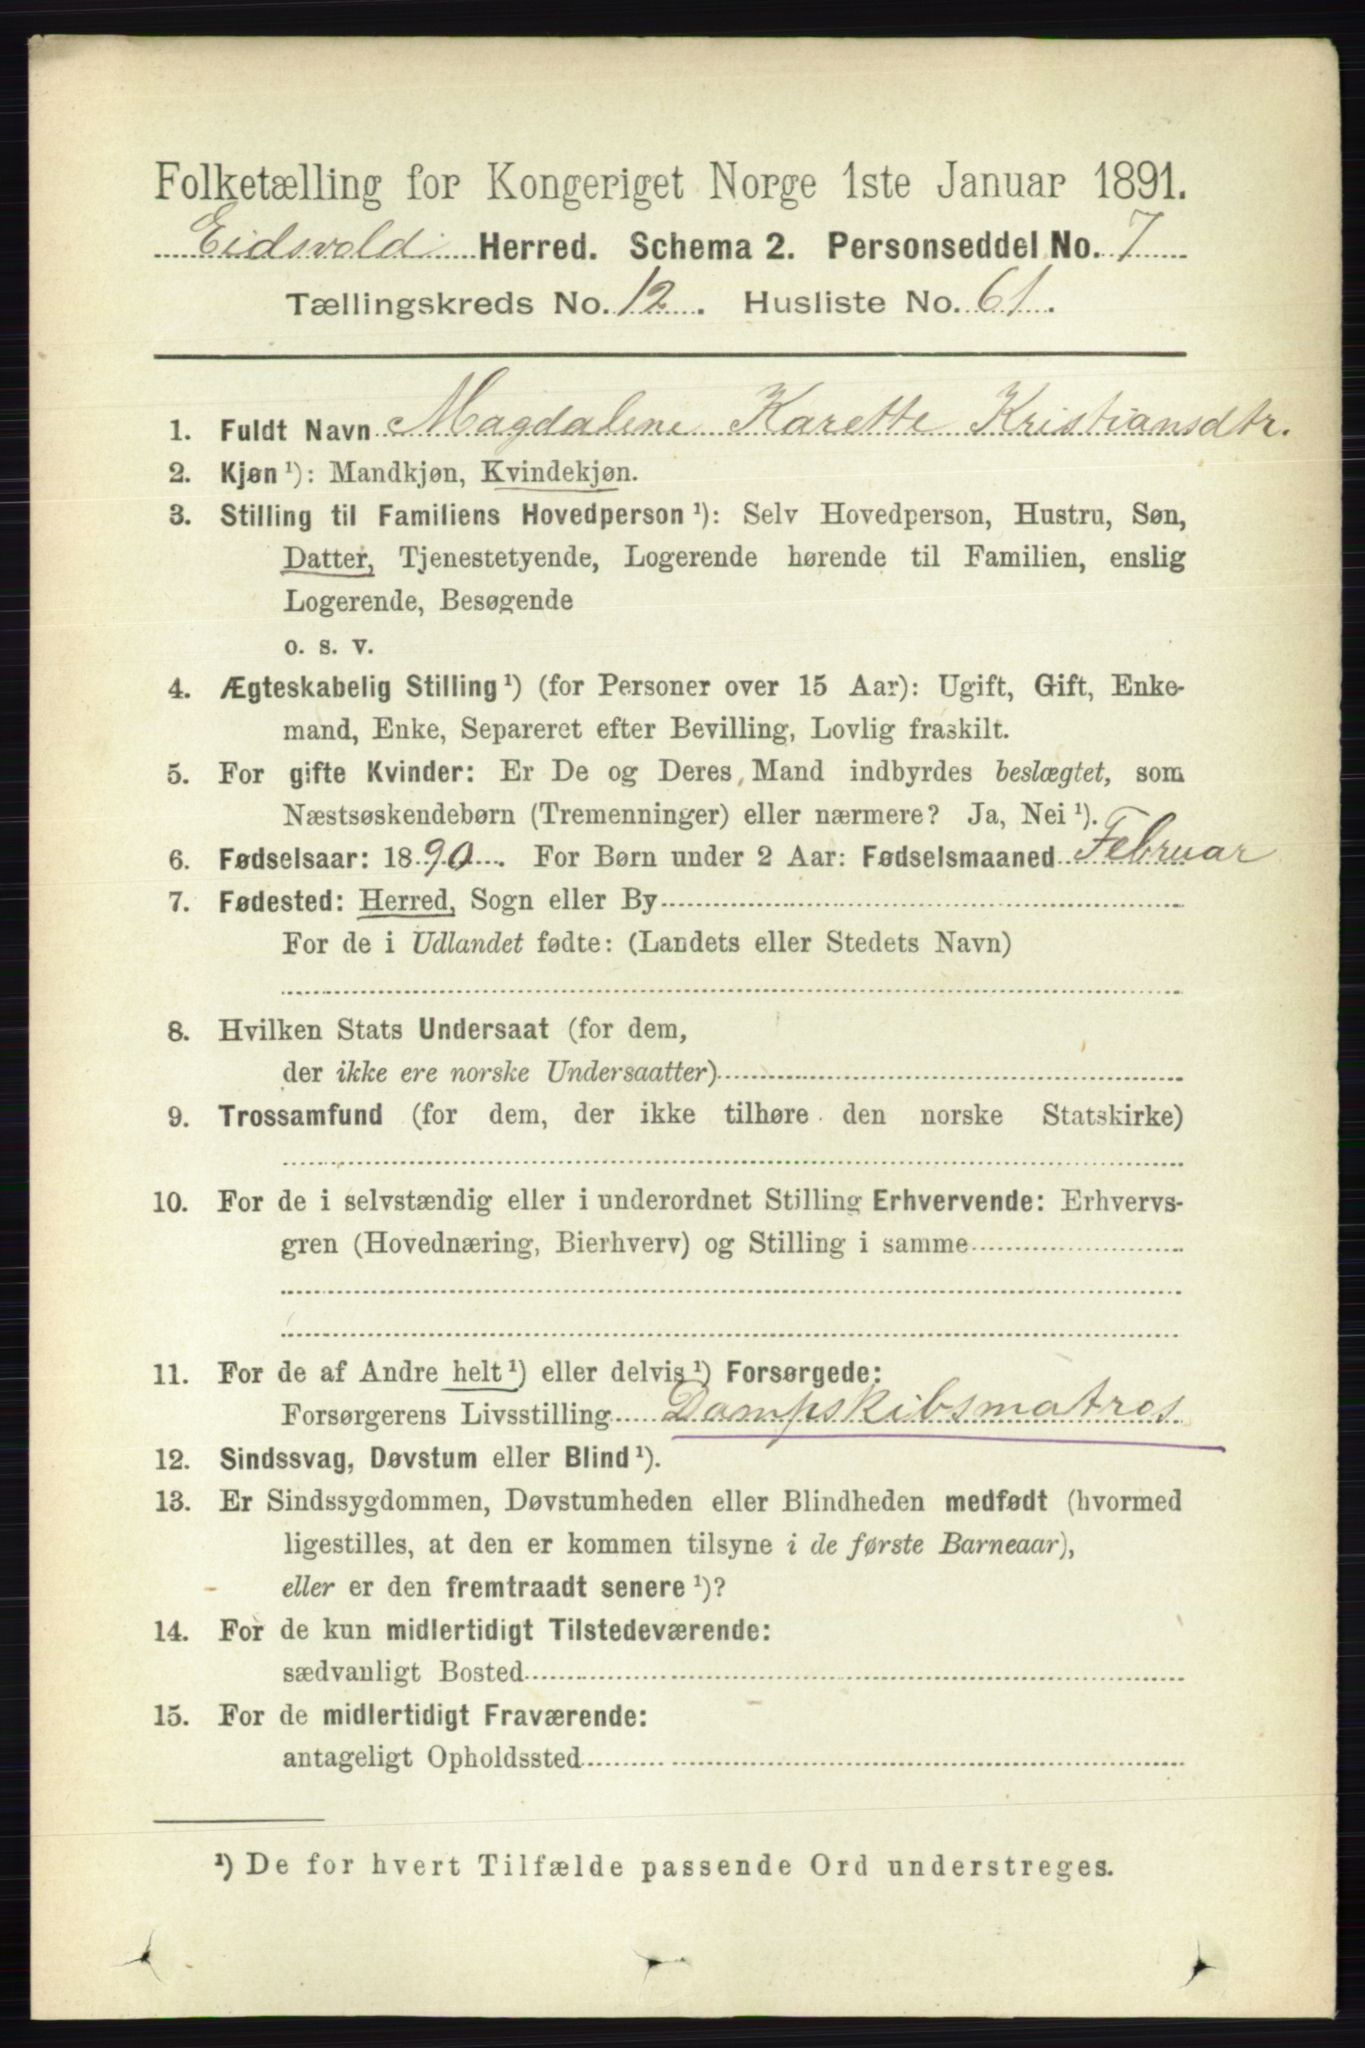 Folketælling for Kongeriget Norge 1ste Januar 1891.
Eidsvold Herred. Schema 2. Personseddel No. 7
Tællingskreds No. 12. Husliste No. 61.
1. Fuldt Navn Magdalene Karette Kristiansdtr.
2. Kjøn ¹): Mandkjøn, Kvindekjøn.
3. Stilling til Familiens Hovedperson ¹): Selv Hovedperson, Hustru, Søn,
Datter, Tjenestetyende, Logerende hørende til Familien, enslig
Logerende, Besøgende
o. s. v.
4. Ægteskabelig Stilling ¹) (for Personer over 15 Aar): Ugift, Gift, Enke-
mand, Enke, Separeret efter Bevilling, Lovlig fraskilt.
5. For gifte Kvinder: Er De og Deres Mand indbyrdes beslægtet, som
Næstsøskendebørn (Tremenninger) eller nærmere? Ja, Nei ¹).
6. Fødselsaar: 1890. For Børn under 2 Aar: Fødselsmaaned Februar
7. Fødested: Herred, Sogn eller By
For de i Udlandet fødte: (Landets eller Stedets Navn)
8. Hvilken Stats Undersaat (for dem,
der ikke ere norske Undersaatter)
9. Trossamfund (for dem, der ikke tilhøre den norske Statskirke)
10. For de i selvstændig eller i underordnet Stilling Erhvervende: Erhvervs-
gren (Hovednæring, Bierhverv) og Stilling i samme
11. For de af Andre helt ¹) eller delvis ¹) Forsørgede:
Forsørgerens Livsstilling Dampskibsmatros
12. Sindssvag, Døvstum eller Blind ¹).
13. Er Sindssygdommen, Døvstumheden eller Blindheden medfødt (hvormed
ligestilles, at den er kommen tilsyne i de første Barneaar),
eller er den fremtraadt senere ¹)?
14. For de kun midlertidigt Tilstedeværende:
sædvanligt Bosted
15. For de midlertidigt Fraværende:
antageligt Opholdssted
¹) De for hvert Tilfælde passende Ord understreges.